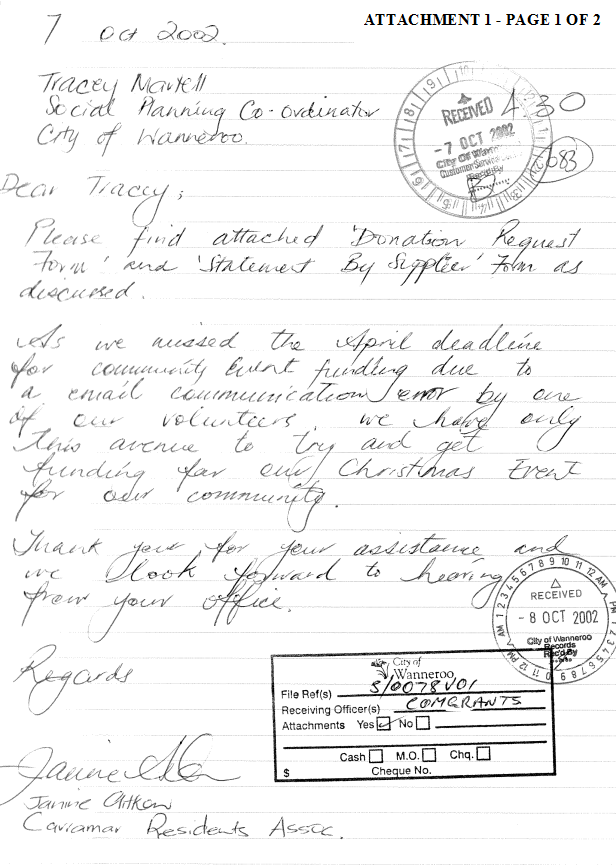 ATTACHMENT 1 - PAGE 1 OF 2
7 Oct 2002.
Tracey Martell
Social Planning Co-ordinator
City of Wanneroo.
RECEIVED
- 7 OCT 2002
City Of Wanneroo
Customer Service
4.30
Dear Tracey,
Please find attached 'Donation Request
Form' and 'Statement By Supplier' Form as
discussed.
As we missed the April deadline
for community Event funding due to
a email communication error by one
of our volunteers, we have only
this avenue to try and get
funding for our Christmas Event
for our community.
Thank you for your assistance and
we look forward to hearing
from your office.
RECEIVED
- 8 OCT 2002
City of Wanneroo
Records
Rec'd By
Regards
City of
Wanneroo
File Ref(s) S/0078V01
Receiving Officer(s) COMGRANTS
Attachments Yes No
Cash M.O. Chq.
$ Cheque No.
Janine Aitken
Carramar Residents Assoc.